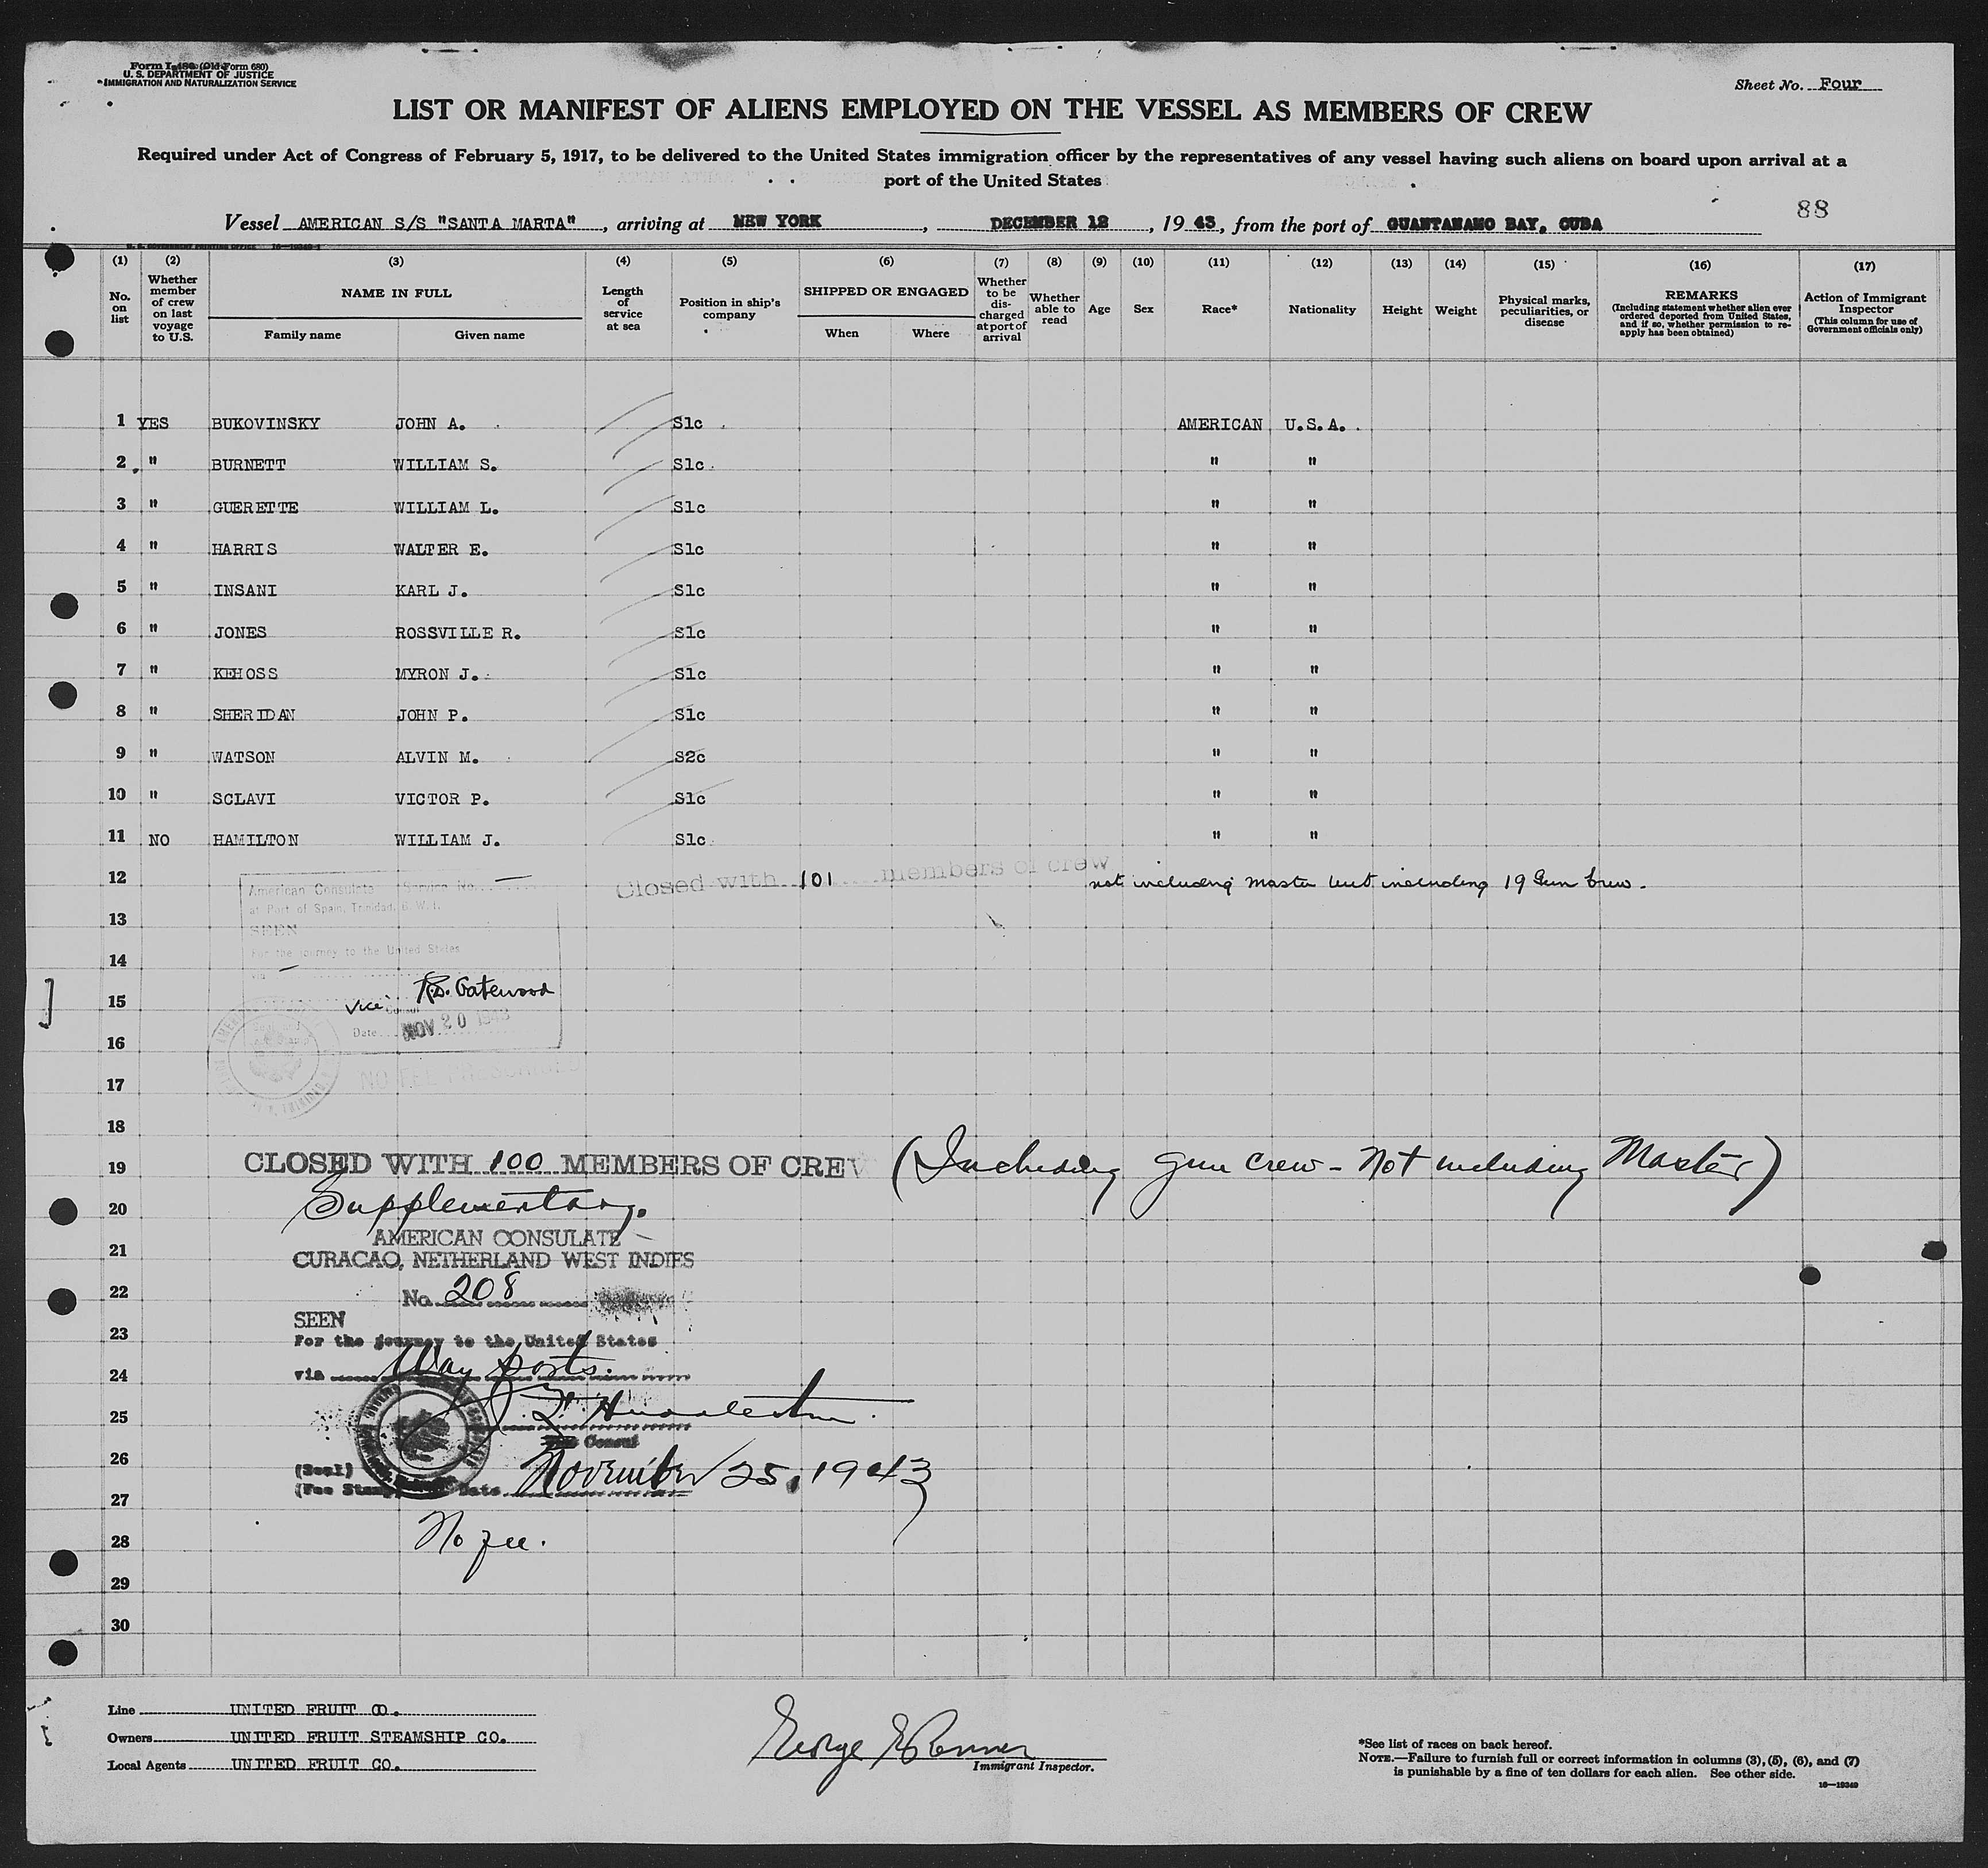 Form I-480 (Old Form 680)
U. S. DEPARTMENT OF JUSTICE
IMMIGRATION AND NATURALIZATION SERVICE
Sheet No. Four
LIST OR MANIFEST OF ALIENS EMPLOYED ON THE VESSEL AS MEMBERS OF CREW
Required under Act of Congress of February 5, 1917, to be delivered to the United States immigration officer by the representatives of any vessel having such aliens on board upon arrival at a
port of the United States
88
Vessel AMERICAN S/S "SANTA MARTA", arriving at NEW YORK, DECEMBER 12, 1943, from the port of GUANTANAMO BAY, CUBA
(1) (2) (3) (4) (5) (6) (7) (8) (9) (10) (11) (12) (13) (14) (15) (16) (17)
No. on list
Whether member of crew on last voyage to U.S.
NAME IN FULL
Family name Given name
Length of service at sea
Position in ship's company
SHIPPED OR ENGAGED
When Where
Whether to be discharged at port of arrival
Whether able to read
Age
Sex
Race*
Nationality
Height
Weight
Physical marks, peculiarities, or disease
REMARKS
(Including statement whether alien ever ordered deported from United States, and if so, whether permission to re-apply has been obtained)
Action of Immigrant Inspector
(This column for use of Government officials only)
1 YES BUKOVINSKY JOHN A. S1c AMERICAN U.S.A.
2 " BURNETT WILLIAM S. S1c " "
3 " GUERETTE WILLIAM L. S1c " "
4 " HARRIS WALTER E. S1c " "
5 " INSANI KARL J. S1c " "
6 " JONES ROSSVILLE R. S1c " "
7 " KEHOSS MYRON J. S1c " "
8 " SHERIDAN JOHN P. S1c " "
9 " WATSON ALVIN M. S2c " "
10 " SCLAVI VICTOR P. S1c " "
11 NO HAMILTON WILLIAM J. S1c " "
12 Closed with 101 members of crew not including Master but including 19 Gun Crew.
American Consulate Service No. —
at Port of Spain, Trinidad, B. W. I.
13
SEEN
For the journey to the United States
14
via —
15
R.D. Gatewood
Vice Consul
Date NOV 20 1943
16
17
NO FEE PRESCRIBED
18
19 CLOSED WITH 100 MEMBERS OF CREW (Including gun crew - Not including Master)
20 Supplementary.
AMERICAN CONSULATE
21 CURACAO, NETHERLAND WEST INDIES
22 No. 208
SEEN
23 For the journey to the United States
24 via Way ports.
25
Consul
26 (Seal)
(Fee Stamp) Date November 25, 1943
27
28 No fee.
29
30
Line UNITED FRUIT CO.
Owners UNITED FRUIT STEAMSHIP CO.
Local Agents UNITED FRUIT CO.
Immigrant Inspector.
*See list of races on back hereof.
NOTE.—Failure to furnish full or correct information in columns (3), (5), (6), and (7)
is punishable by a fine of ten dollars for each alien. See other side.
16—19340